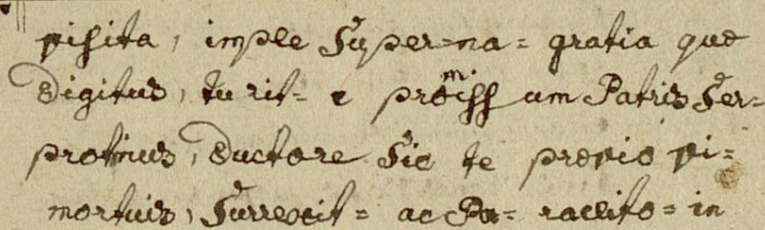 visita, imple Super=na= gratia que
Digitus, tu rit= e promissum Patris Ser=
protinus, Ductore Sic te previo vi=
mortuis, Surrexit= ac Pa= raclito= in